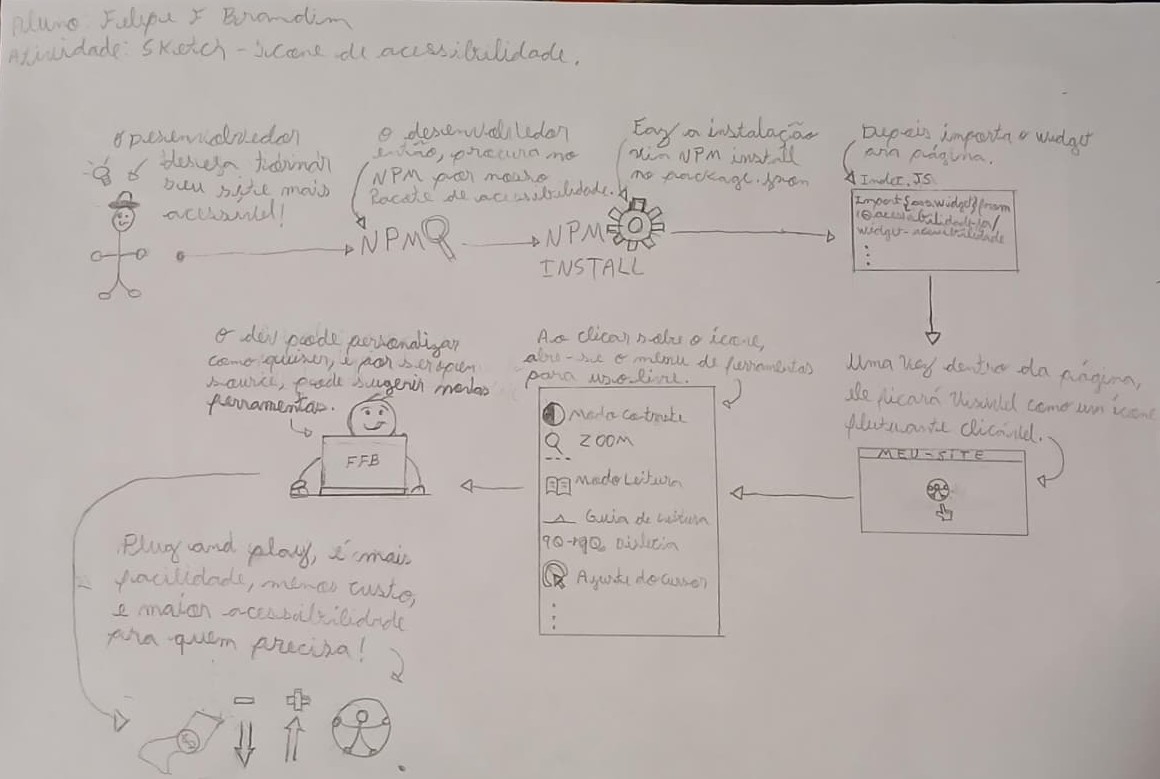 Aluno Felipe F Brandim
Atividade: Sketch - ícone de acessibilidade.
O Desenvolvedor
deseja tornar
seu site mais
acessível!
O desenvolvedor
então, procura no
NPM por nosso
Pacote de acessibilidade.
NPM
Faz a instalação
via NPM install
no package.json
NPM
INSTALL
Depois importa o widget
na página.
Index.JS
Import{ }from
widget-acessibilidade
Uma vez dentro da página,
ele ficará visível como um ícone
flutuante clicável.
MEU-SITE
Ao clicar sobre o ícone,
abre-se o menu de ferramentas
para uso livre.
Modo Contraste
ZOOM
Modo Leitura
Guia de Leitura
Dislexia
Ajuste do cursor
O dev pode personalizar
como quiser, e por ser open
source, pode sugerir novas
ferramentas.
FFB
Plug and play, é mais
facilidade, menos custo,
e maior acessibilidade
para quem precisa!